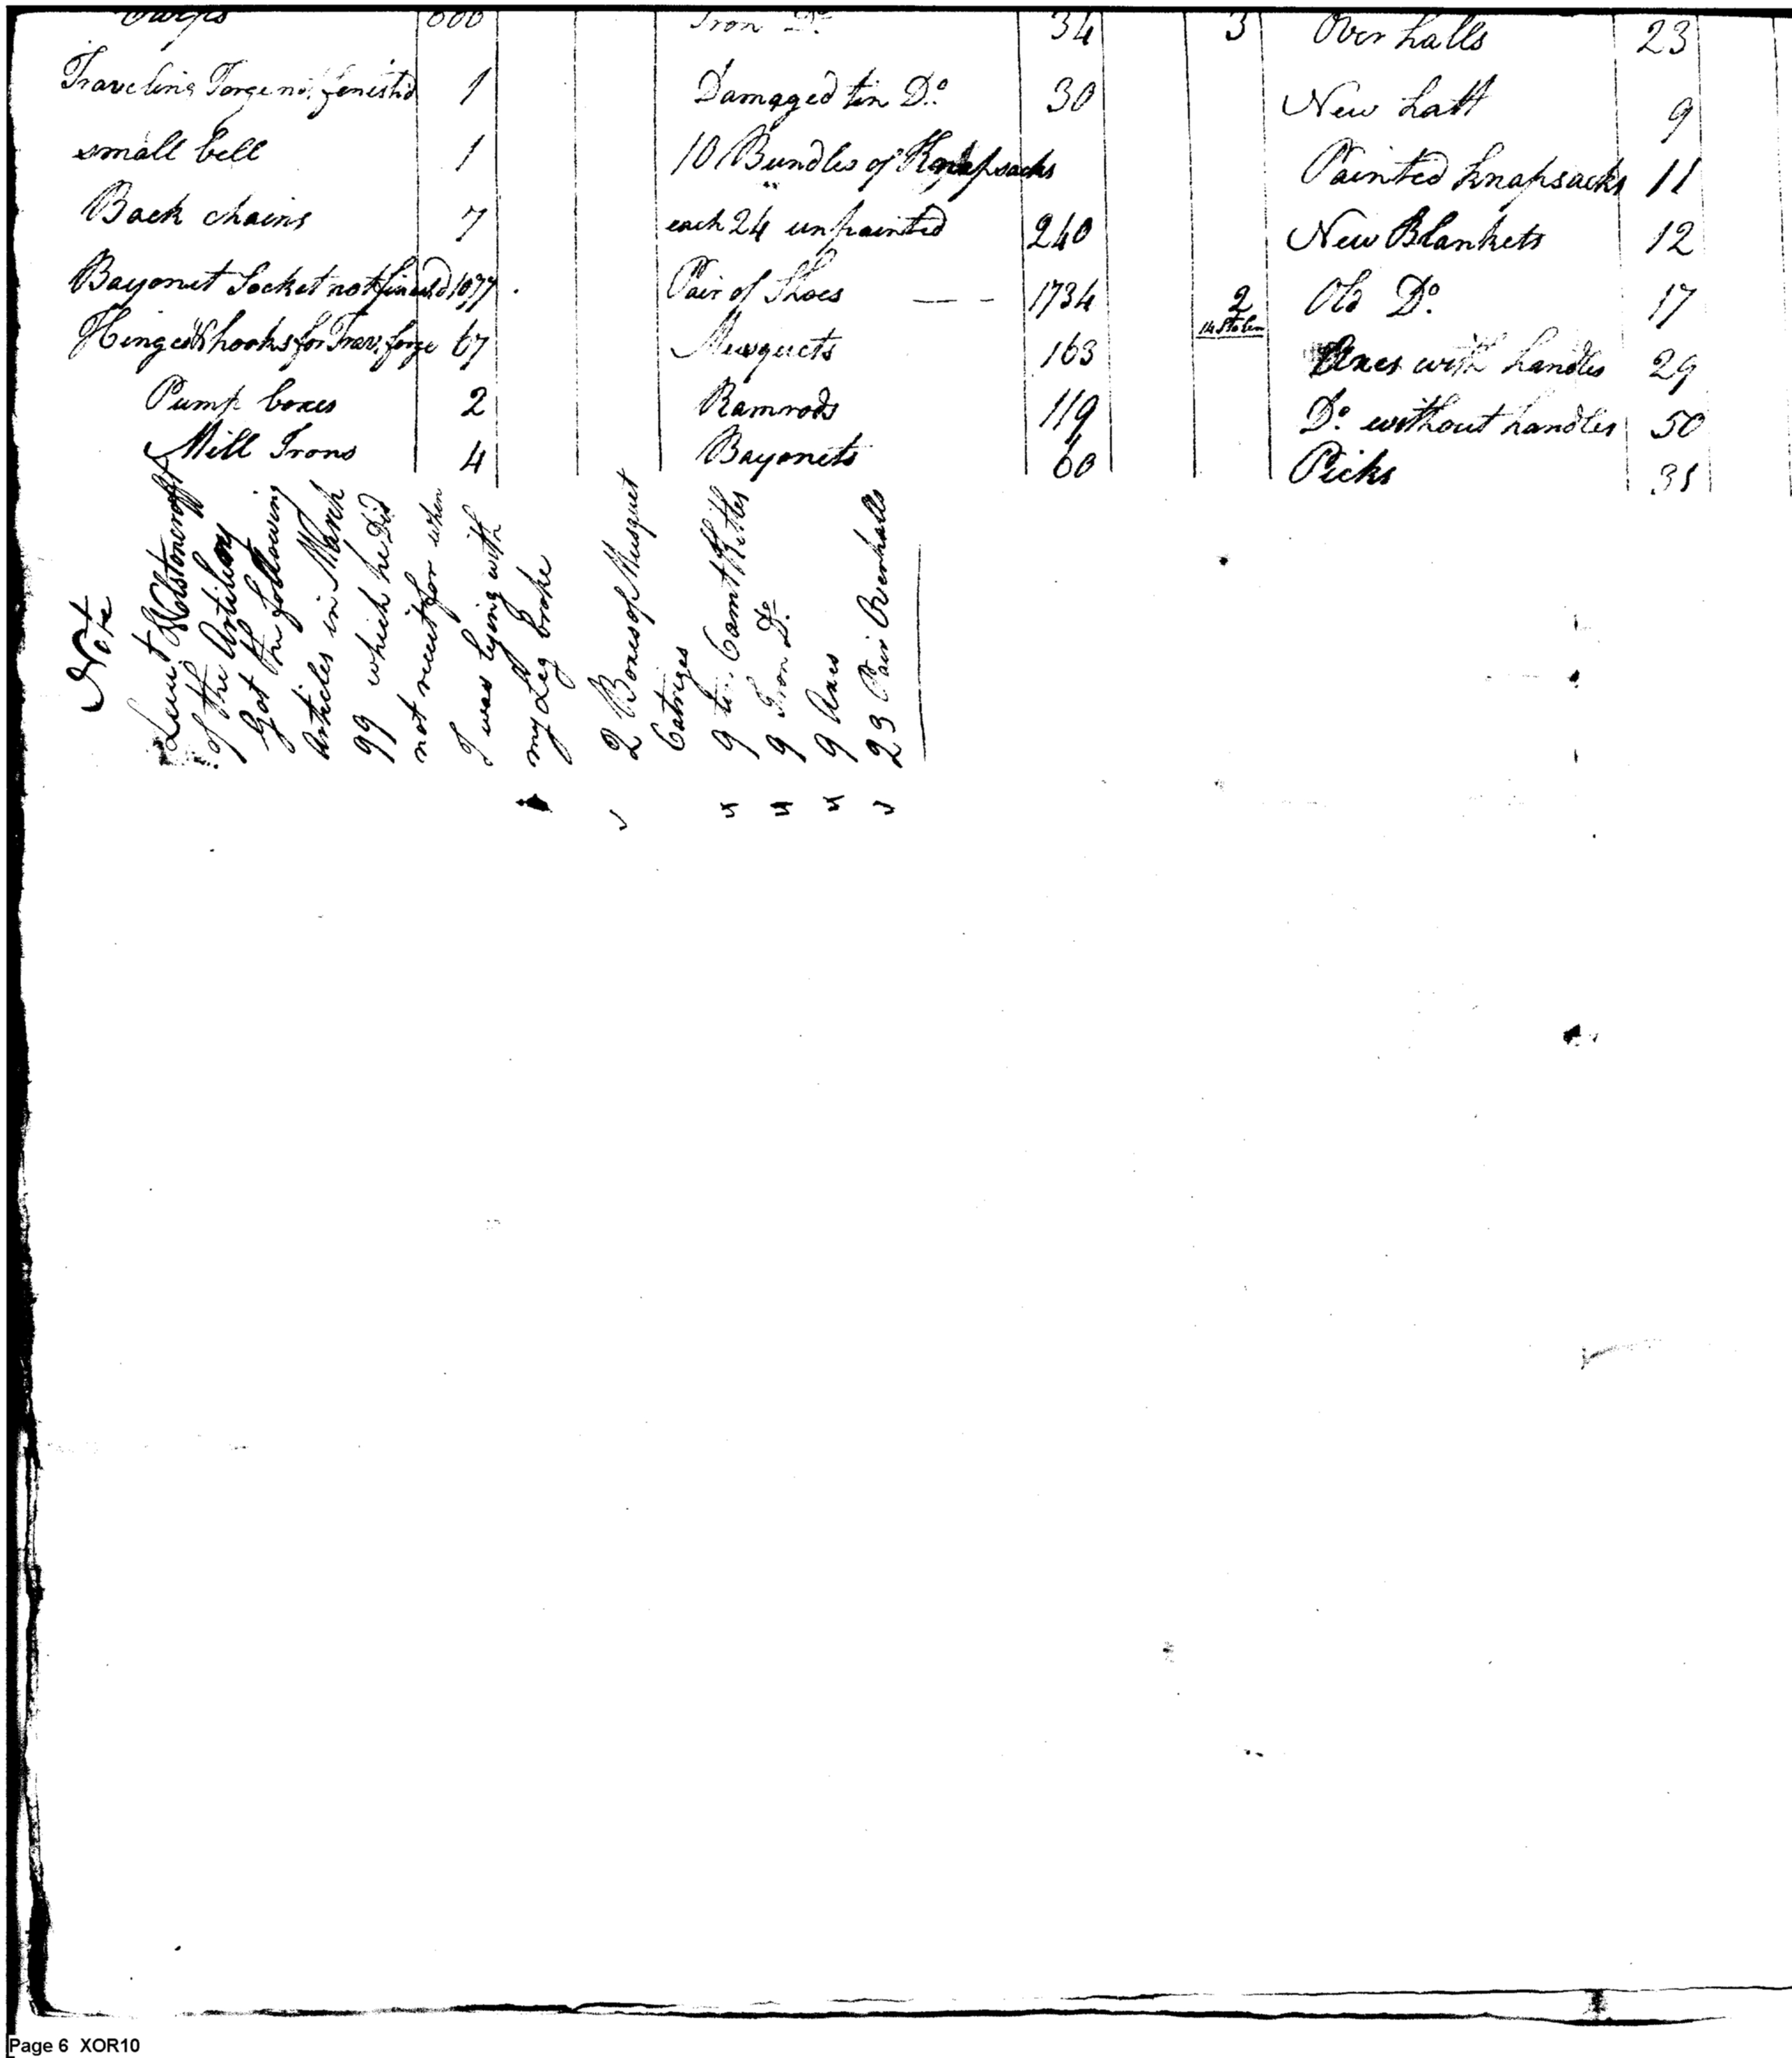 Iron Do 34 3 Over halls 23
Traveling Forge not finisht'd 1 Damaged tin Do 30 New hatt 9
small bell 1 10 Bundles of Knapsacks Painted knapsacks 11
Back chains 7 each 24 unpainted 240 New Blankets 12
Bayonet Socket not finised 1077 Pair of Shoes 1734 2 Old Do 17
14 Stolen
Hinges & hooks for Trav. forge 67 Musquets 163 Axes with handles 29
Pump boxes 2 Ramrods 119 Do without handles 50
Mill Irons 4 Bayonets 60 Picks 31
Note
Lieut Wolstoncroft
of the Artilleary
Got the following
Articles in March
99 which he Did
not receit for when
I was lying with
my Leg broke
2 Boxes of Musquet
Catriges
9 tin Camt Kittles
9 Iron Do
9 Axes
23 Pair Overhalls
Page 6 XOR10